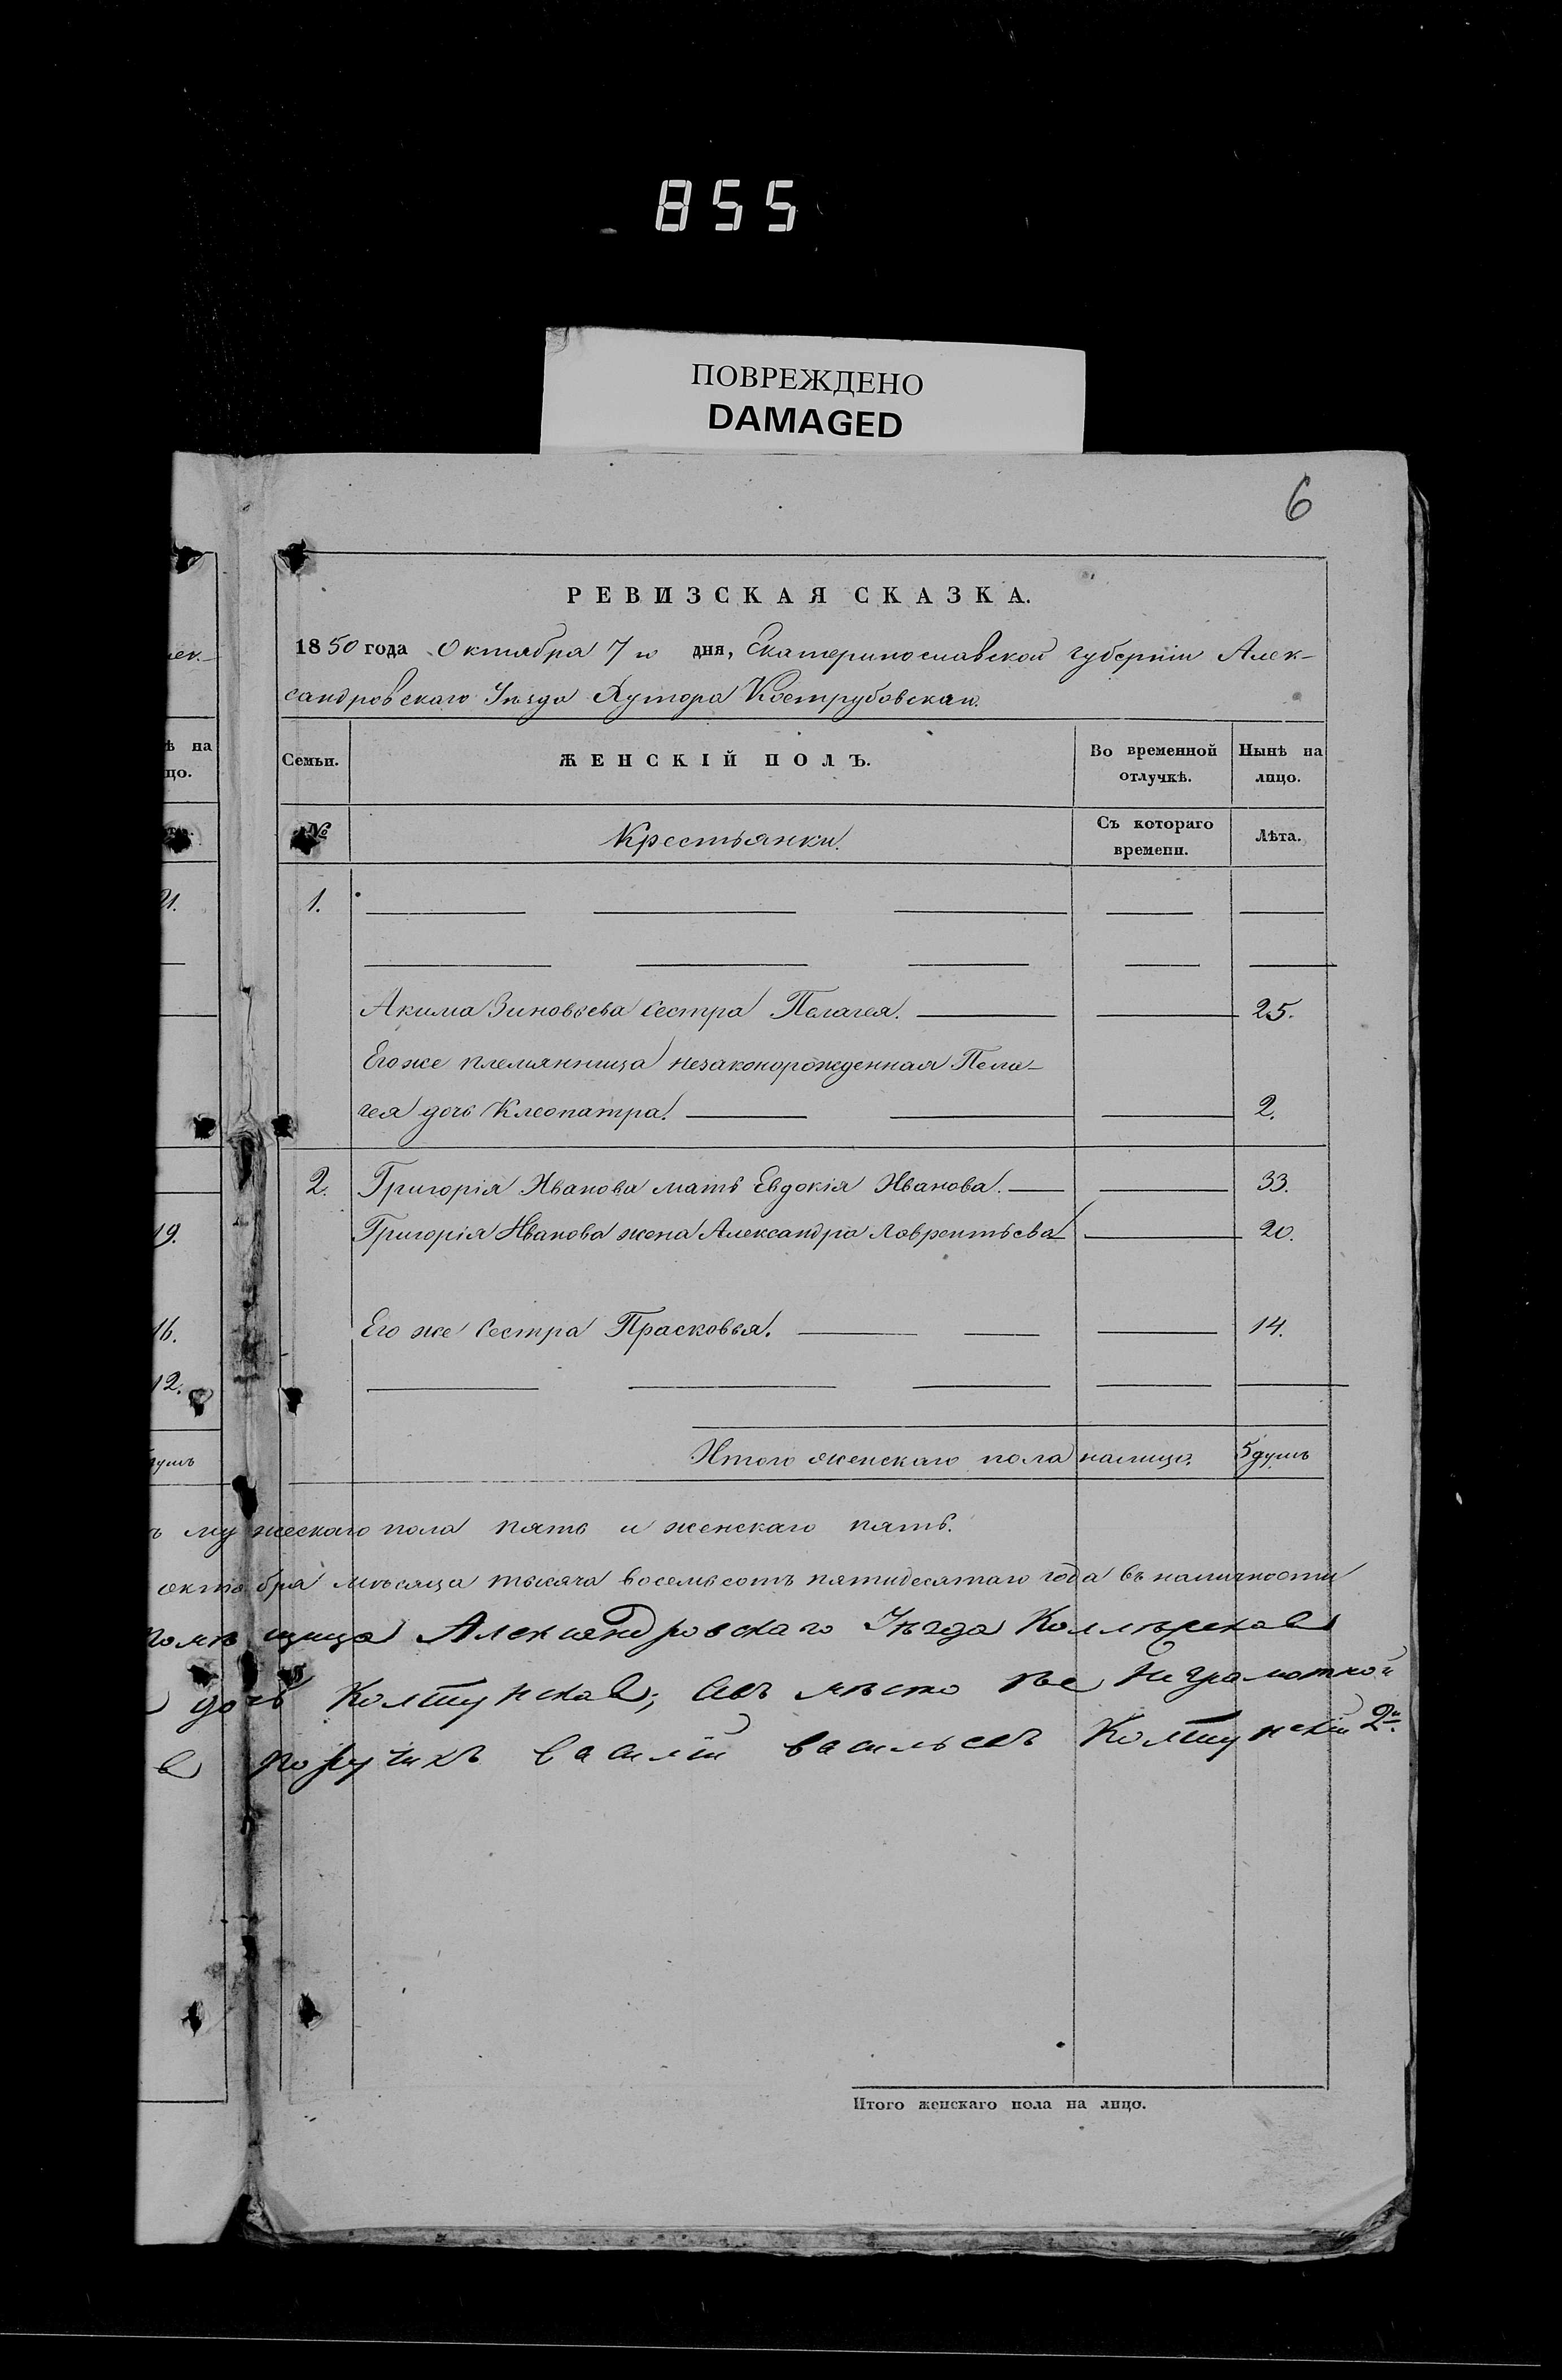 855
ПОВРЕЖДЕНО
DAMAGED
6
РЕВИЗСКАЯ СКАЗКА.
1850 года Октября 7го дня, Екатеринославской губерніи Алек-
сандровскаго Уѣзда Хутора Кострубовскаго.
ѣ на
цо.
Семьи.
ЖЕНСКІЙ ПОЛЪ.
Во временной
отлучкѣ.
Нынѣ на
лицо.
№
Крестьянки.
Съ котораго
времени.
Лѣта.
21.
1.
Акима Зиновьева сестра Пелагея. 25.
Его же племянница незаконорожденная Пела-
гея дочь Клеопатра. 2.
2. Григорія Иванова мать Евдокія Иванова. 33.
19. Григорія Иванова жена Александра Лаврентьева 20.
16. Его же сестра Прасковья. 14.
12.
Итого женскаго пола налицо. 5 душъ
ъ мужескаго пола пять и женскаго пять.
октября мѣсяца тысяча восемьсотъ пятидесятаго года въ наличности
помѣщица Александровскаго Уѣзда
дочь Колтунская; авъ мѣсто ее неграмотной
порутикъ василій васильевъ Колтунскій 2й.
Итого женскаго пола на лицо.